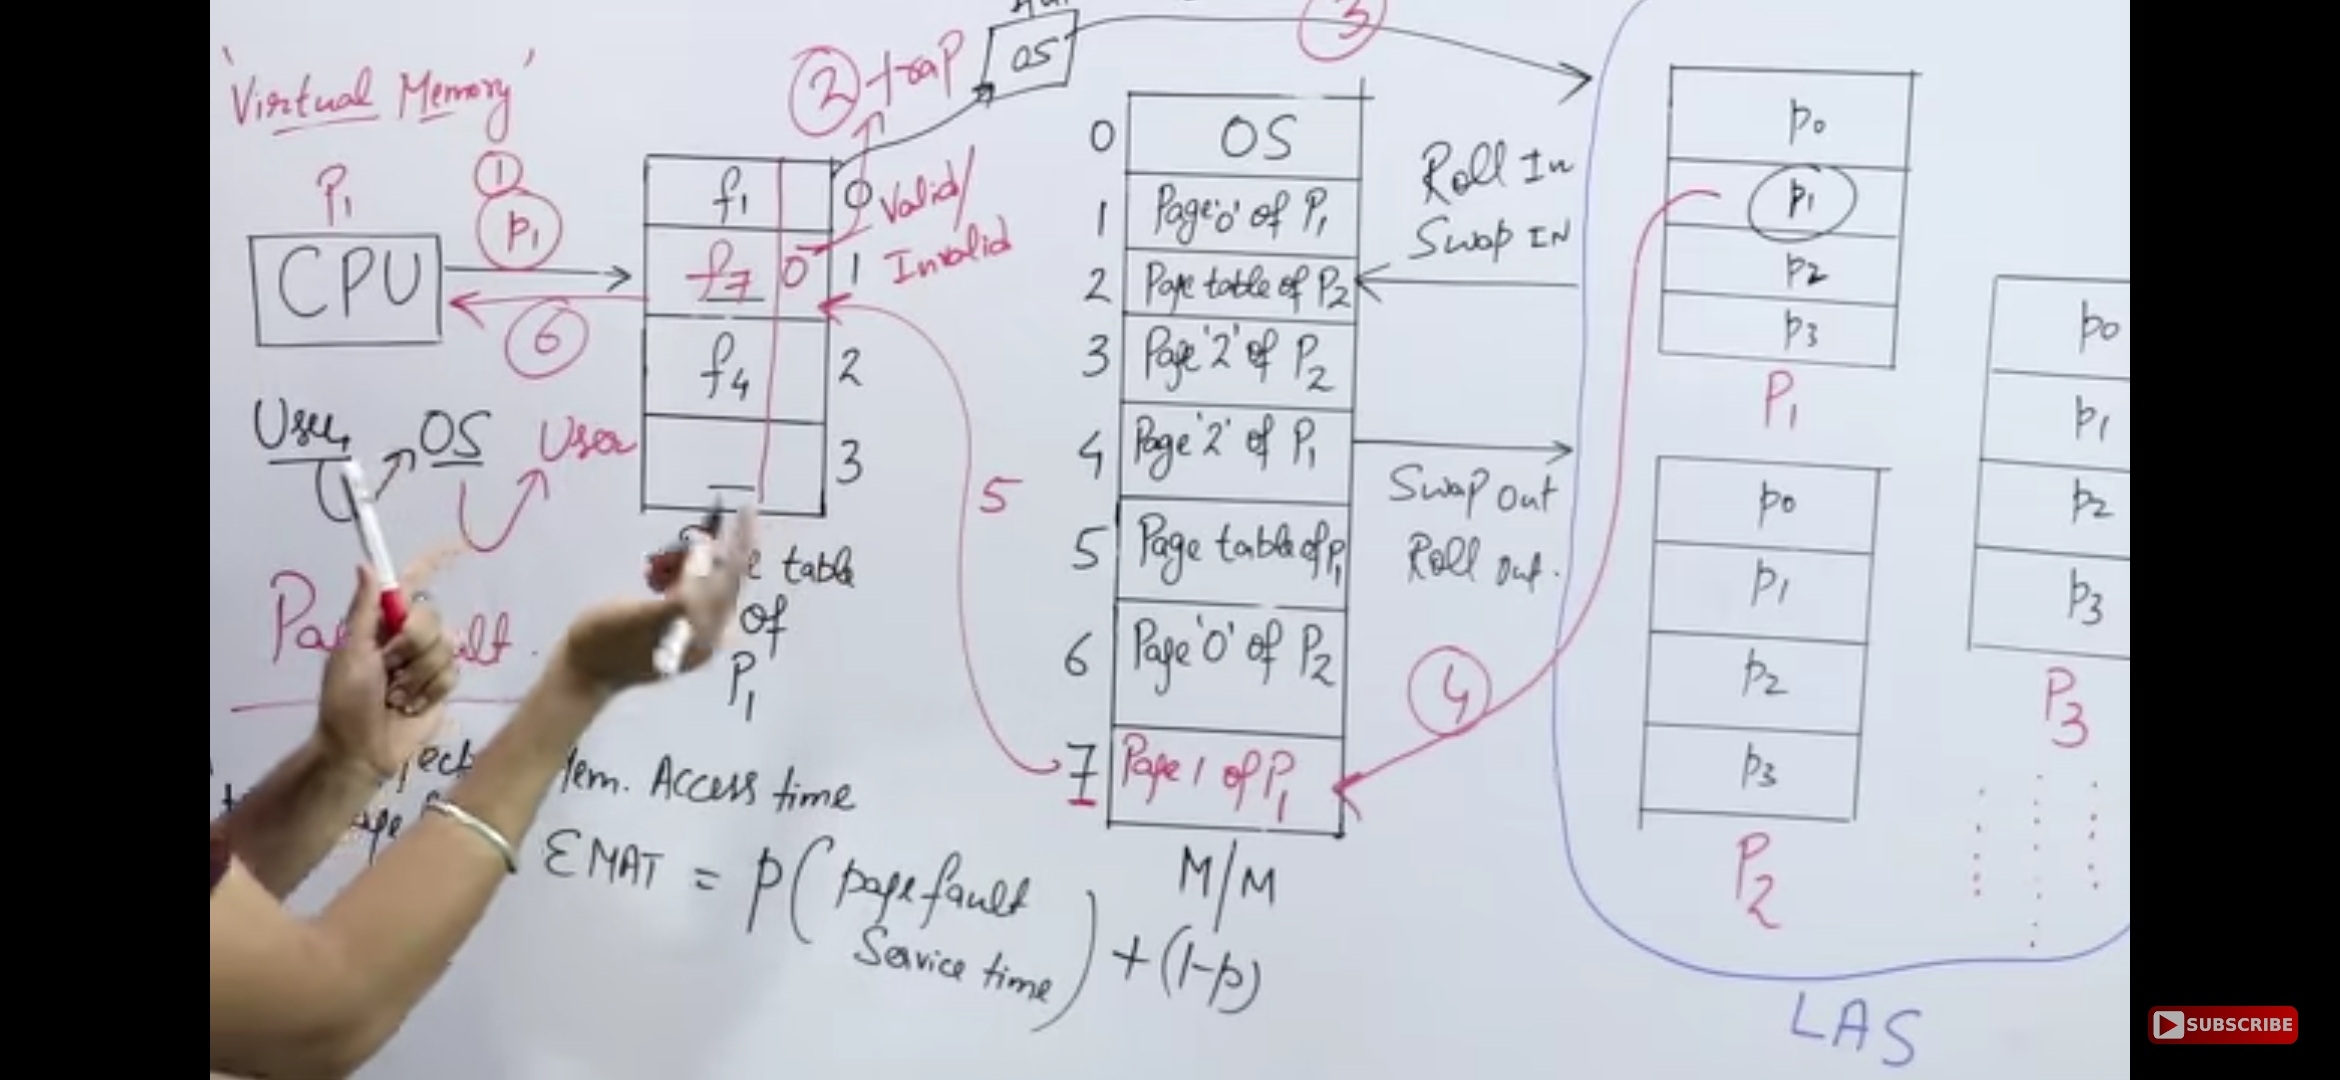 'Virtual Memory'
P1
1
p1
CPU
6
User
OS
User
2 trap
OS
3
f1
0
Valid/
Invalid
f7
0
1
f4
2
3
table
of
P1
5
0
OS
1
Page '0' of P1
2
Page table of P2
3
Page '2' of P2
4
Page '2' of P1
5
Page table of P1
6
Page '0' of P2
7
Page 1 of P1
M/M
Roll In
Swap IN
Swap Out
Roll out.
4
p0
p1
p2
p3
P1
p0
p1
p2
p3
P2
p0
p1
p2
p3
P3
LAS
Access time
EMAT = p(page fault
Service time) + (1-p)
SUBSCRIBE